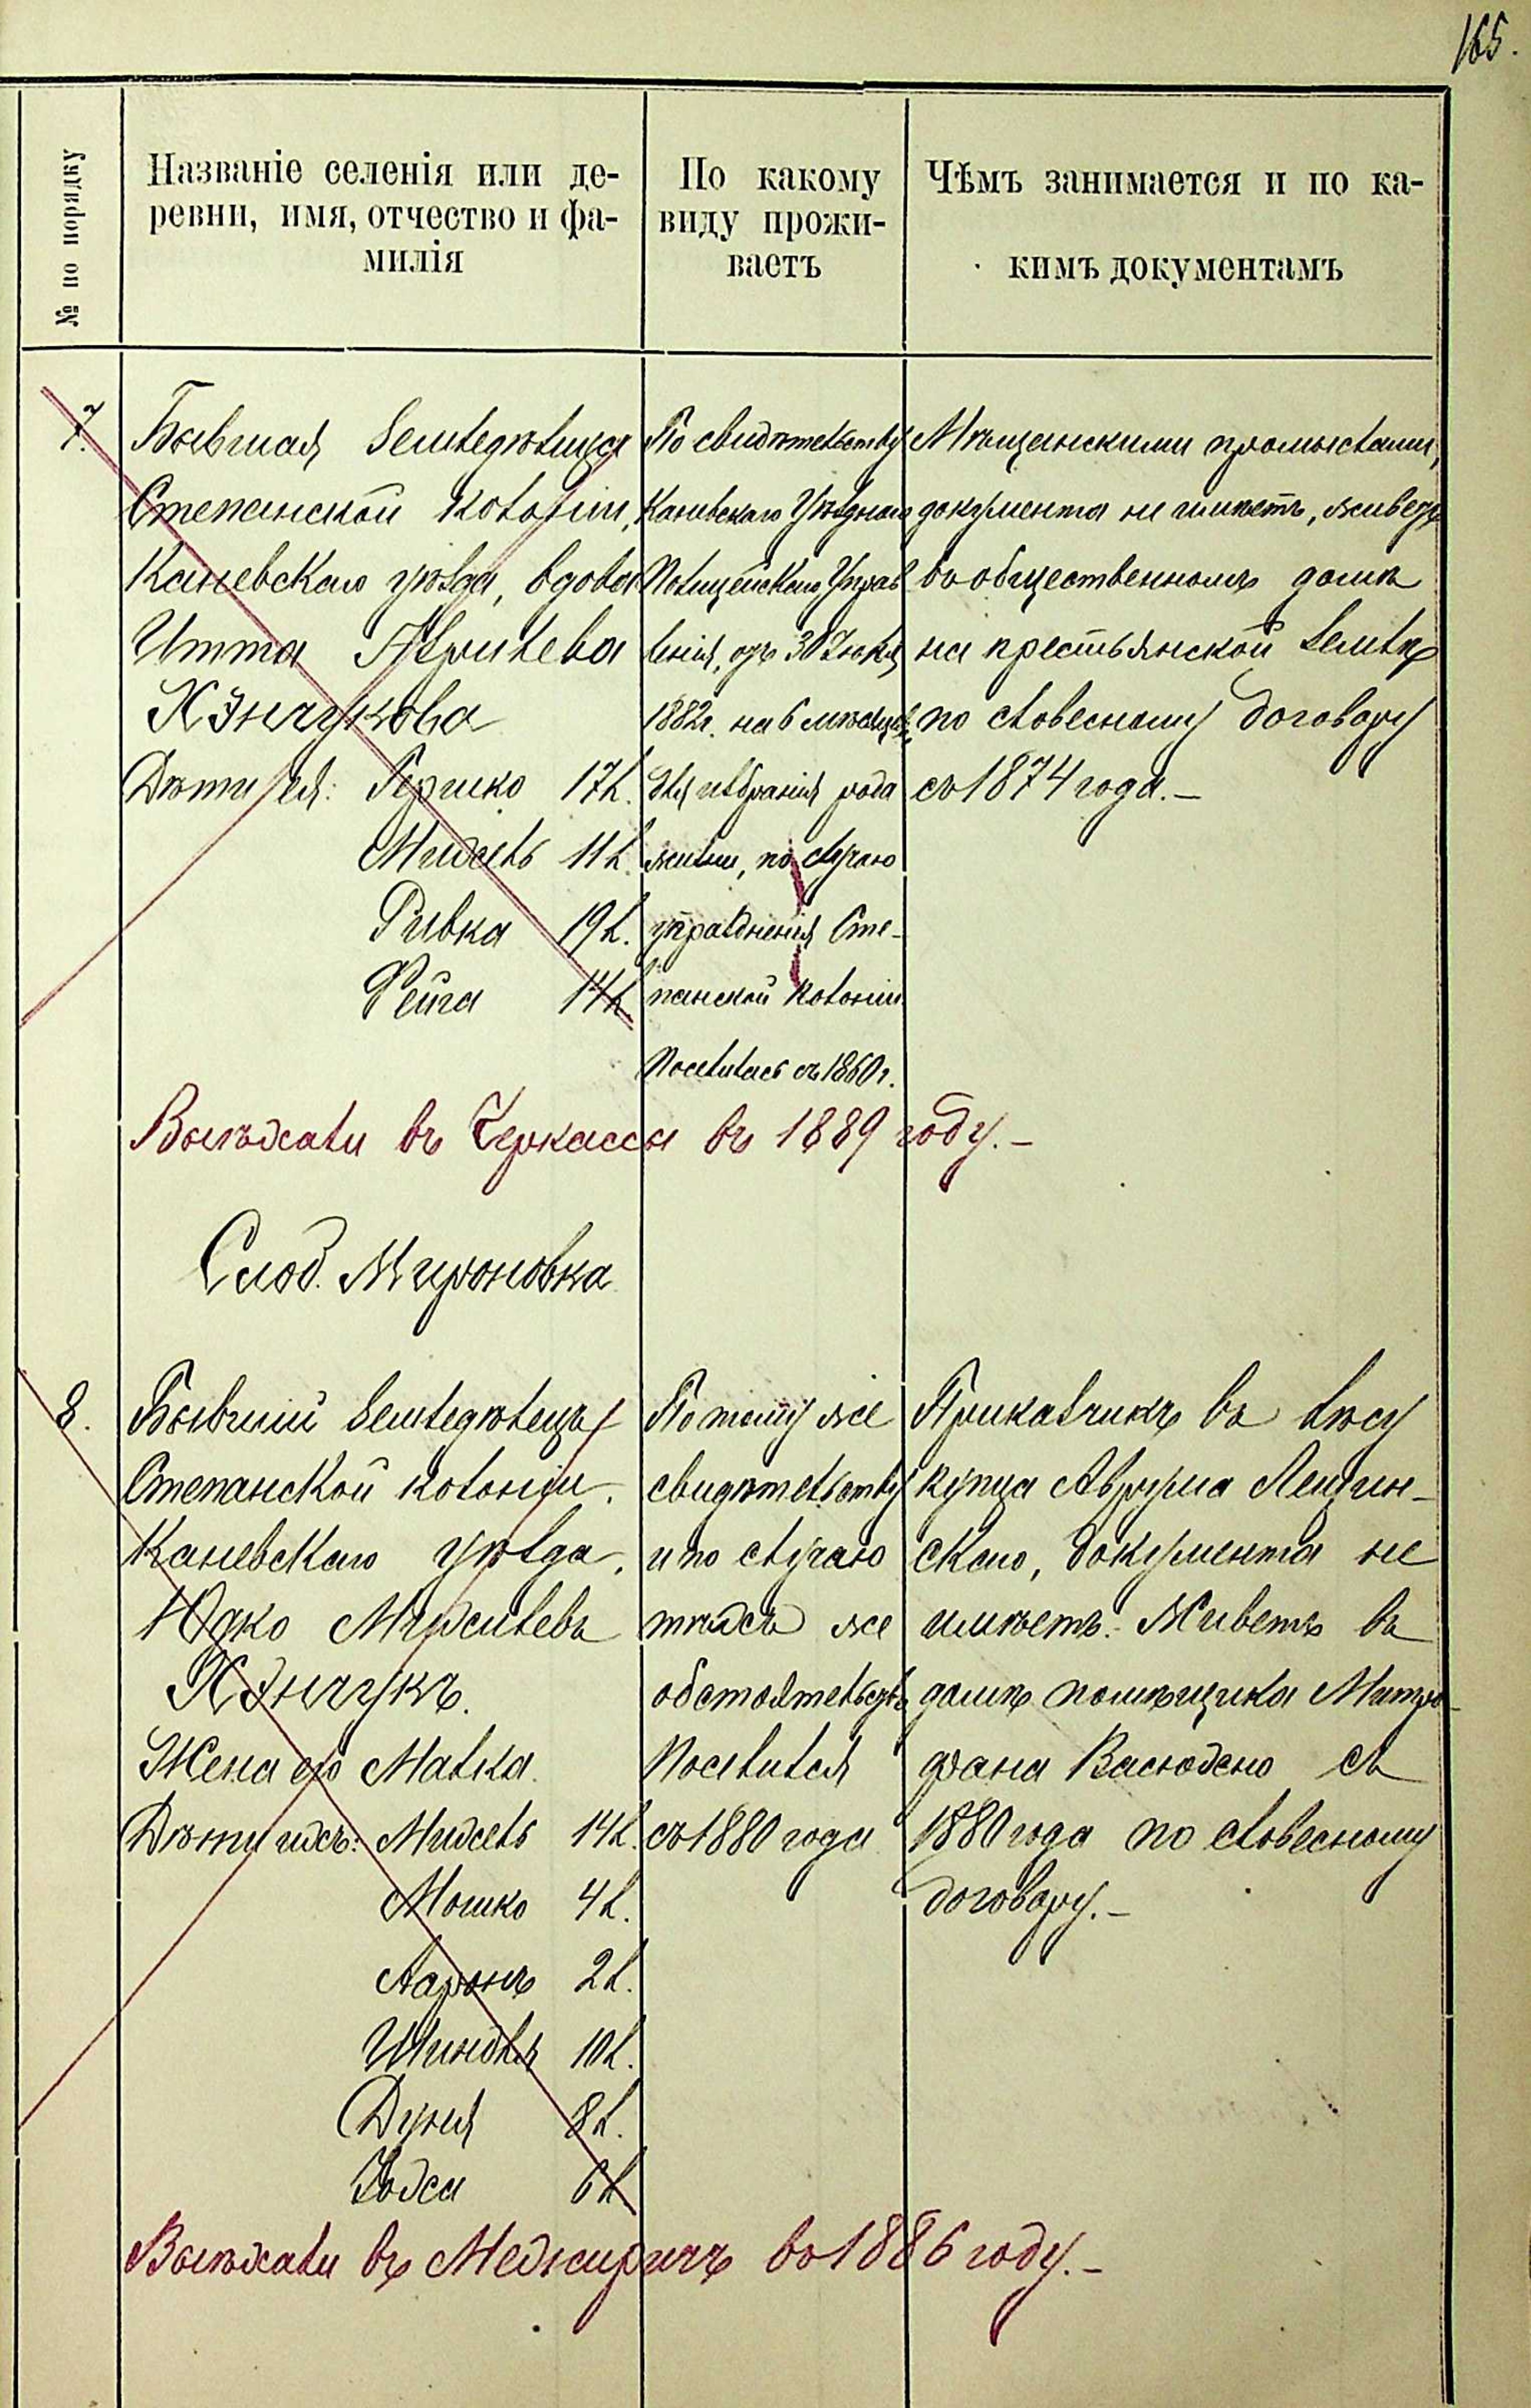 165.
№ по порядку
Названіе селенія или де-
ревни, имя, отчество и фа-
милія
По какому
виду прожи-
ваетъ
Чѣмъ занимается и по ка-
кимъ документамъ
7.
Бывшая земледѣлица
Степанской колоніи,
Каневскаго уѣзда, вдова
Итта
Хэнчукова
Дѣти ея: Гершко 17 л.
Михель 11 л.
Ривка 19 л.
Фейга 14 л.
По свидѣтельству
Каневскаго Уѣзднаго
Полицейскаго Управ
ленія, отъ 30 Іюля
1882 г. на 6 мѣсяцевъ,
для избранія рода
жизни, по случаю
упраздненія Сте-
панской колоніи
Поселилась съ 1860 г.
Мѣщанскими промыслами,
документа не имѣетъ, живетъ
въ общественномъ домѣ
на крестьянской землѣ
по словесному договору
съ 1874 года.—
Выѣхали въ Черкассы въ 1889 году.—
Слоб. Мироновка
8.
Бывшій земледѣлецъ
Степанской колоніи,
Каневскаго уѣзда,
Юдко Михилевъ
Хэнчукъ.
Жена его Малка.
Дѣти ихъ: Михель 14 л.
Мошко 4 л.
Ааронъ 2 л.
Шиндля 10 л.
Дуня 8 л.
Ходса 6 л.
По тому же
свидѣтельству
и по случаю
тѣхъ же
обстоятельствъ
Поселился
съ 1880 года
Приказчикъ въ лѣсу
купца Аврума Лещин-
скаго, документа не
имѣетъ. Живетъ въ
домѣ помѣщика Митро-
фана Васюхно съ
1880 года по словесному
договору.—
Выѣхали въ Межиричъ въ 1886 году.—